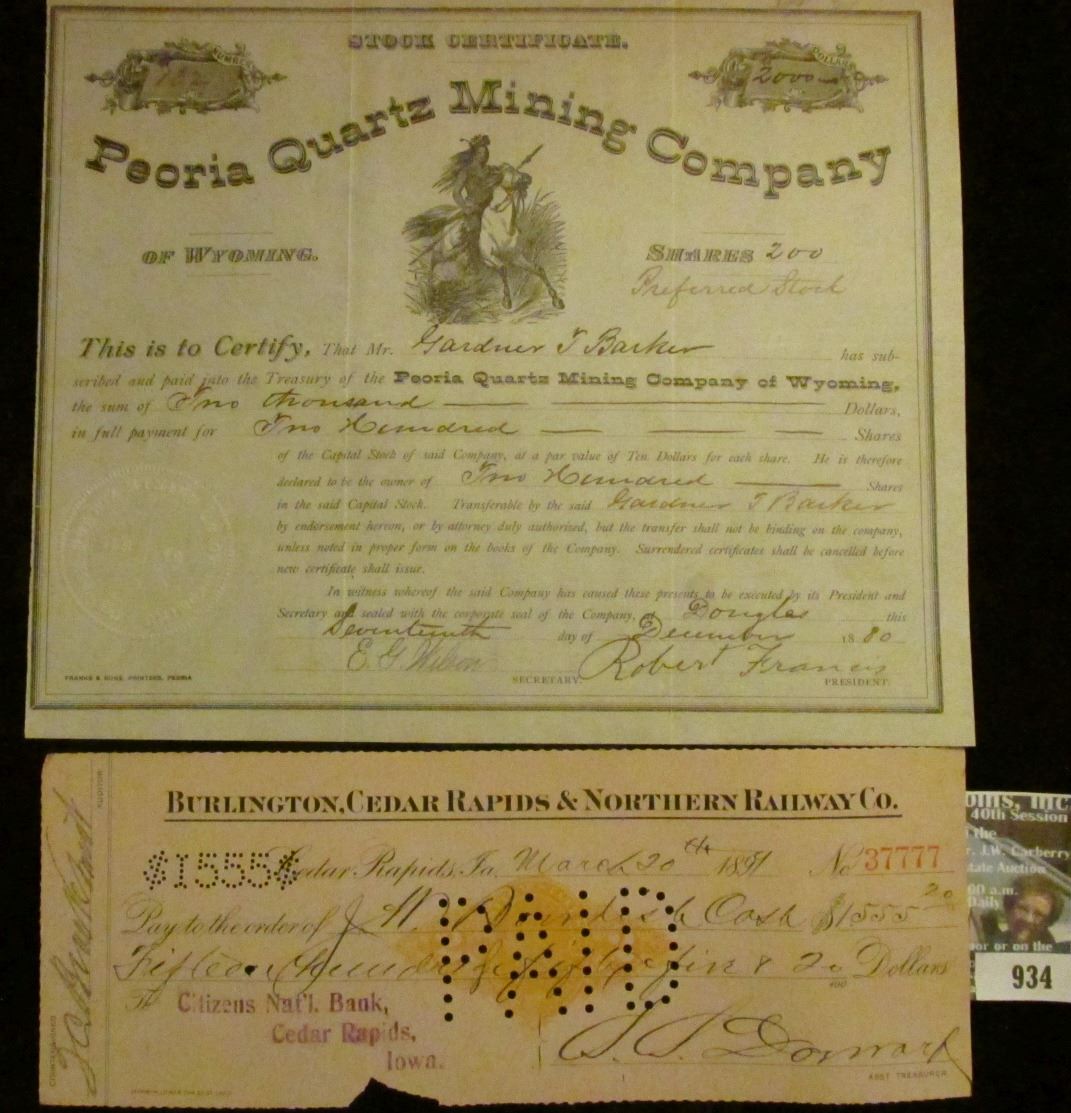 STOCK CERTIFICATE.
NUMBER
DOLLARS
2000
Peoria Quartz Mining Company
OF WYOMING.
SHARES 200
Preferred Stock
This is to Certify, That Mr. Gardner T Barker has sub-
scribed and paid into the Treasury of the Peoria Quartz Mining Company of Wyoming,
the sum of Two thousand Dollars,
in full payment for Two Hundred Shares
of the Capital Stock of said Company, at a par value of Ten Dollars for each share. He is therefore
declared to be the owner of Two Hundred Shares
in the said Capital Stock. Transferable by the said Gardner T Barker
by endorsement hereon, or by attorney duly authorized, but the transfer shall not be binding on the company,
unless noted in proper form on the books of the Company. Surrendered certificates shall be cancelled before
new certificate shall issue.
In witness whereof the said Company has caused these presents to be executed by its President and
Secretary and sealed with the corporate seal of the Company, at Douglas this
Seventeenth day of December 1880
E. G. Wilson SECRETARY. Robert Francis PRESIDENT.
FRANKS & SONS, PRINTERS, PEORIA
BURLINGTON, CEDAR RAPIDS & NORTHERN RAILWAY CO.
AUDITOR
COUNTERSIGNED
$1555$
Cedar Rapids, Ia. March 20th 1891 No. 37777
Pay to the order of J. W. Cash $1555 20
PAID
Fifteen Hundred fifty five & 20/100 Dollars
To Citizens Nat'l. Bank,
Cedar Rapids,
Iowa.
ASST TREASURER.
40th Session
the
r. J.W. Carberry
state Auction
00 a.m.
Daily
or or on the
934